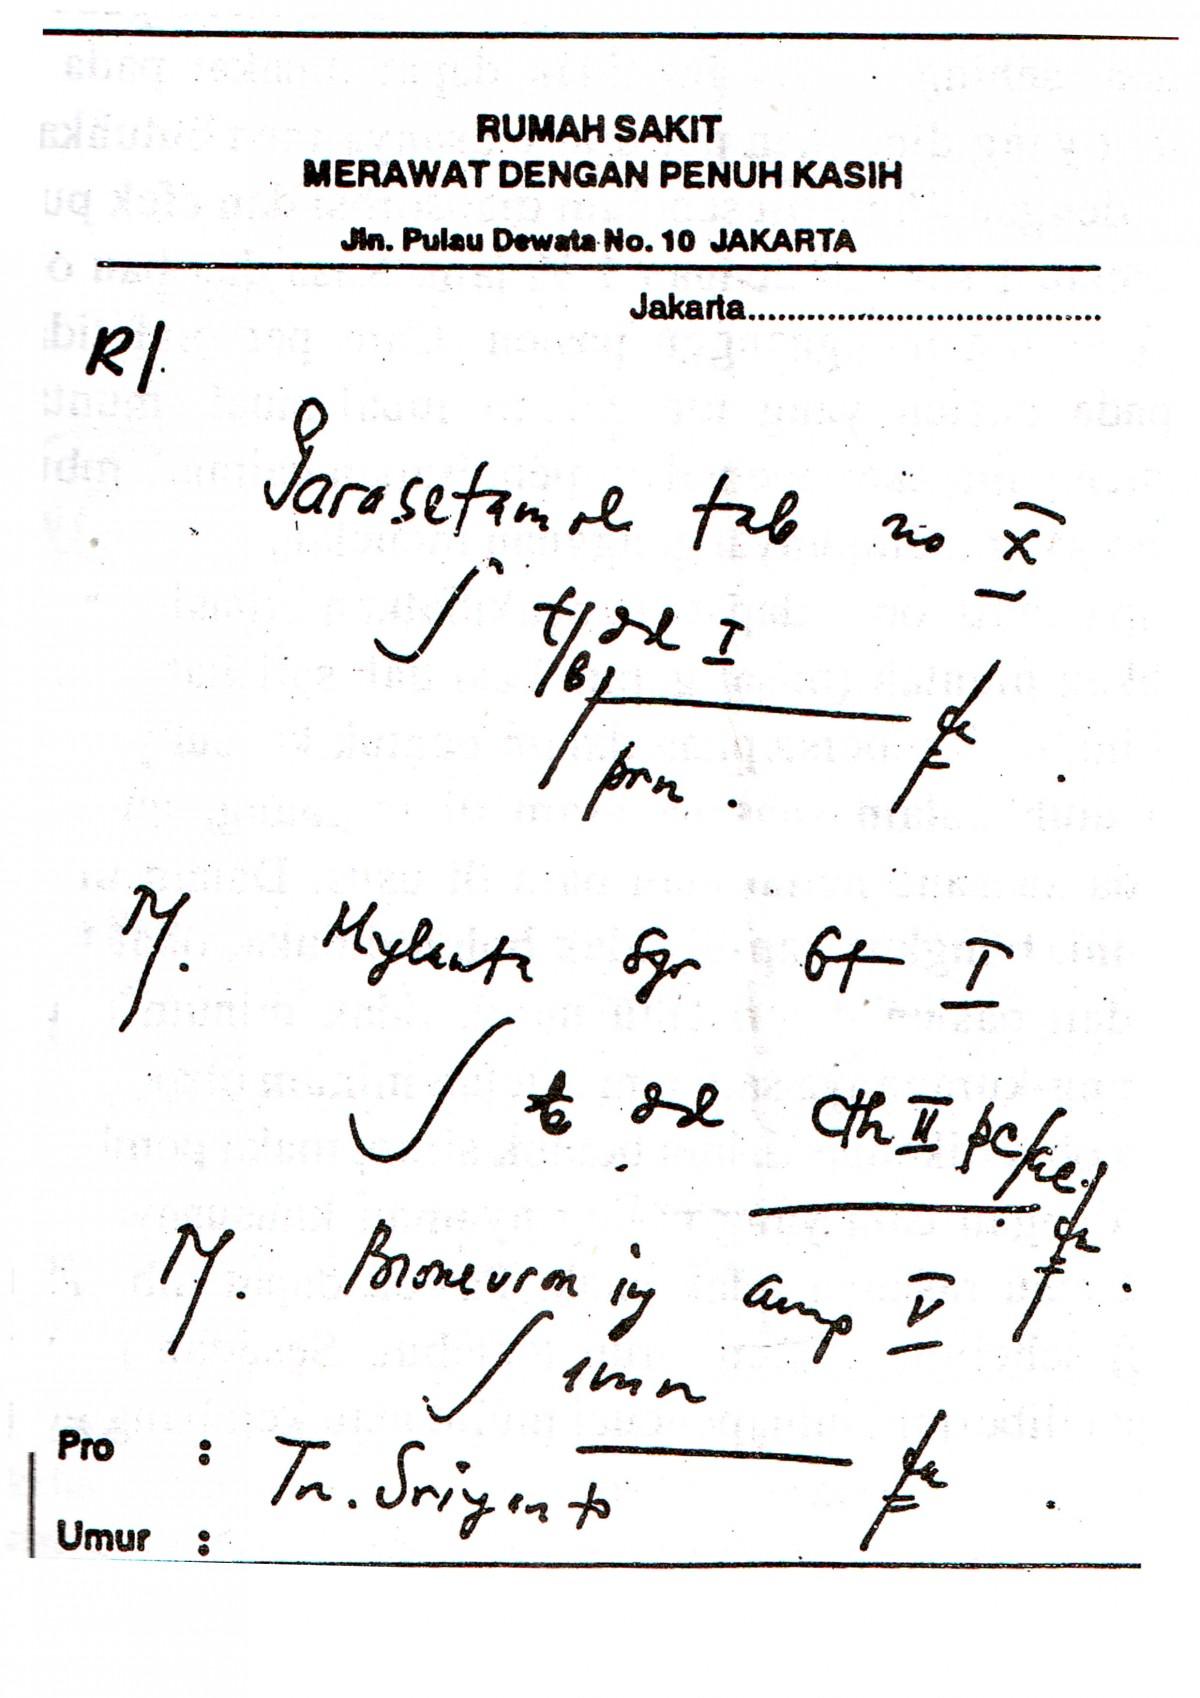 RUMAH SAKIT
MERAWAT DENGAN PENUH KASIH
Jln. Pulau Dewata No. 10 JAKARTA
Jakarta...................................
R/.
Parasetamol tab no X
∫ t/ dd I
prn.
Mylanta syr bt I
∫ dd Cth II pc/
Bioneuron inj amp V
∫ imm
Pro : Tn. Sriyanto
Umur :